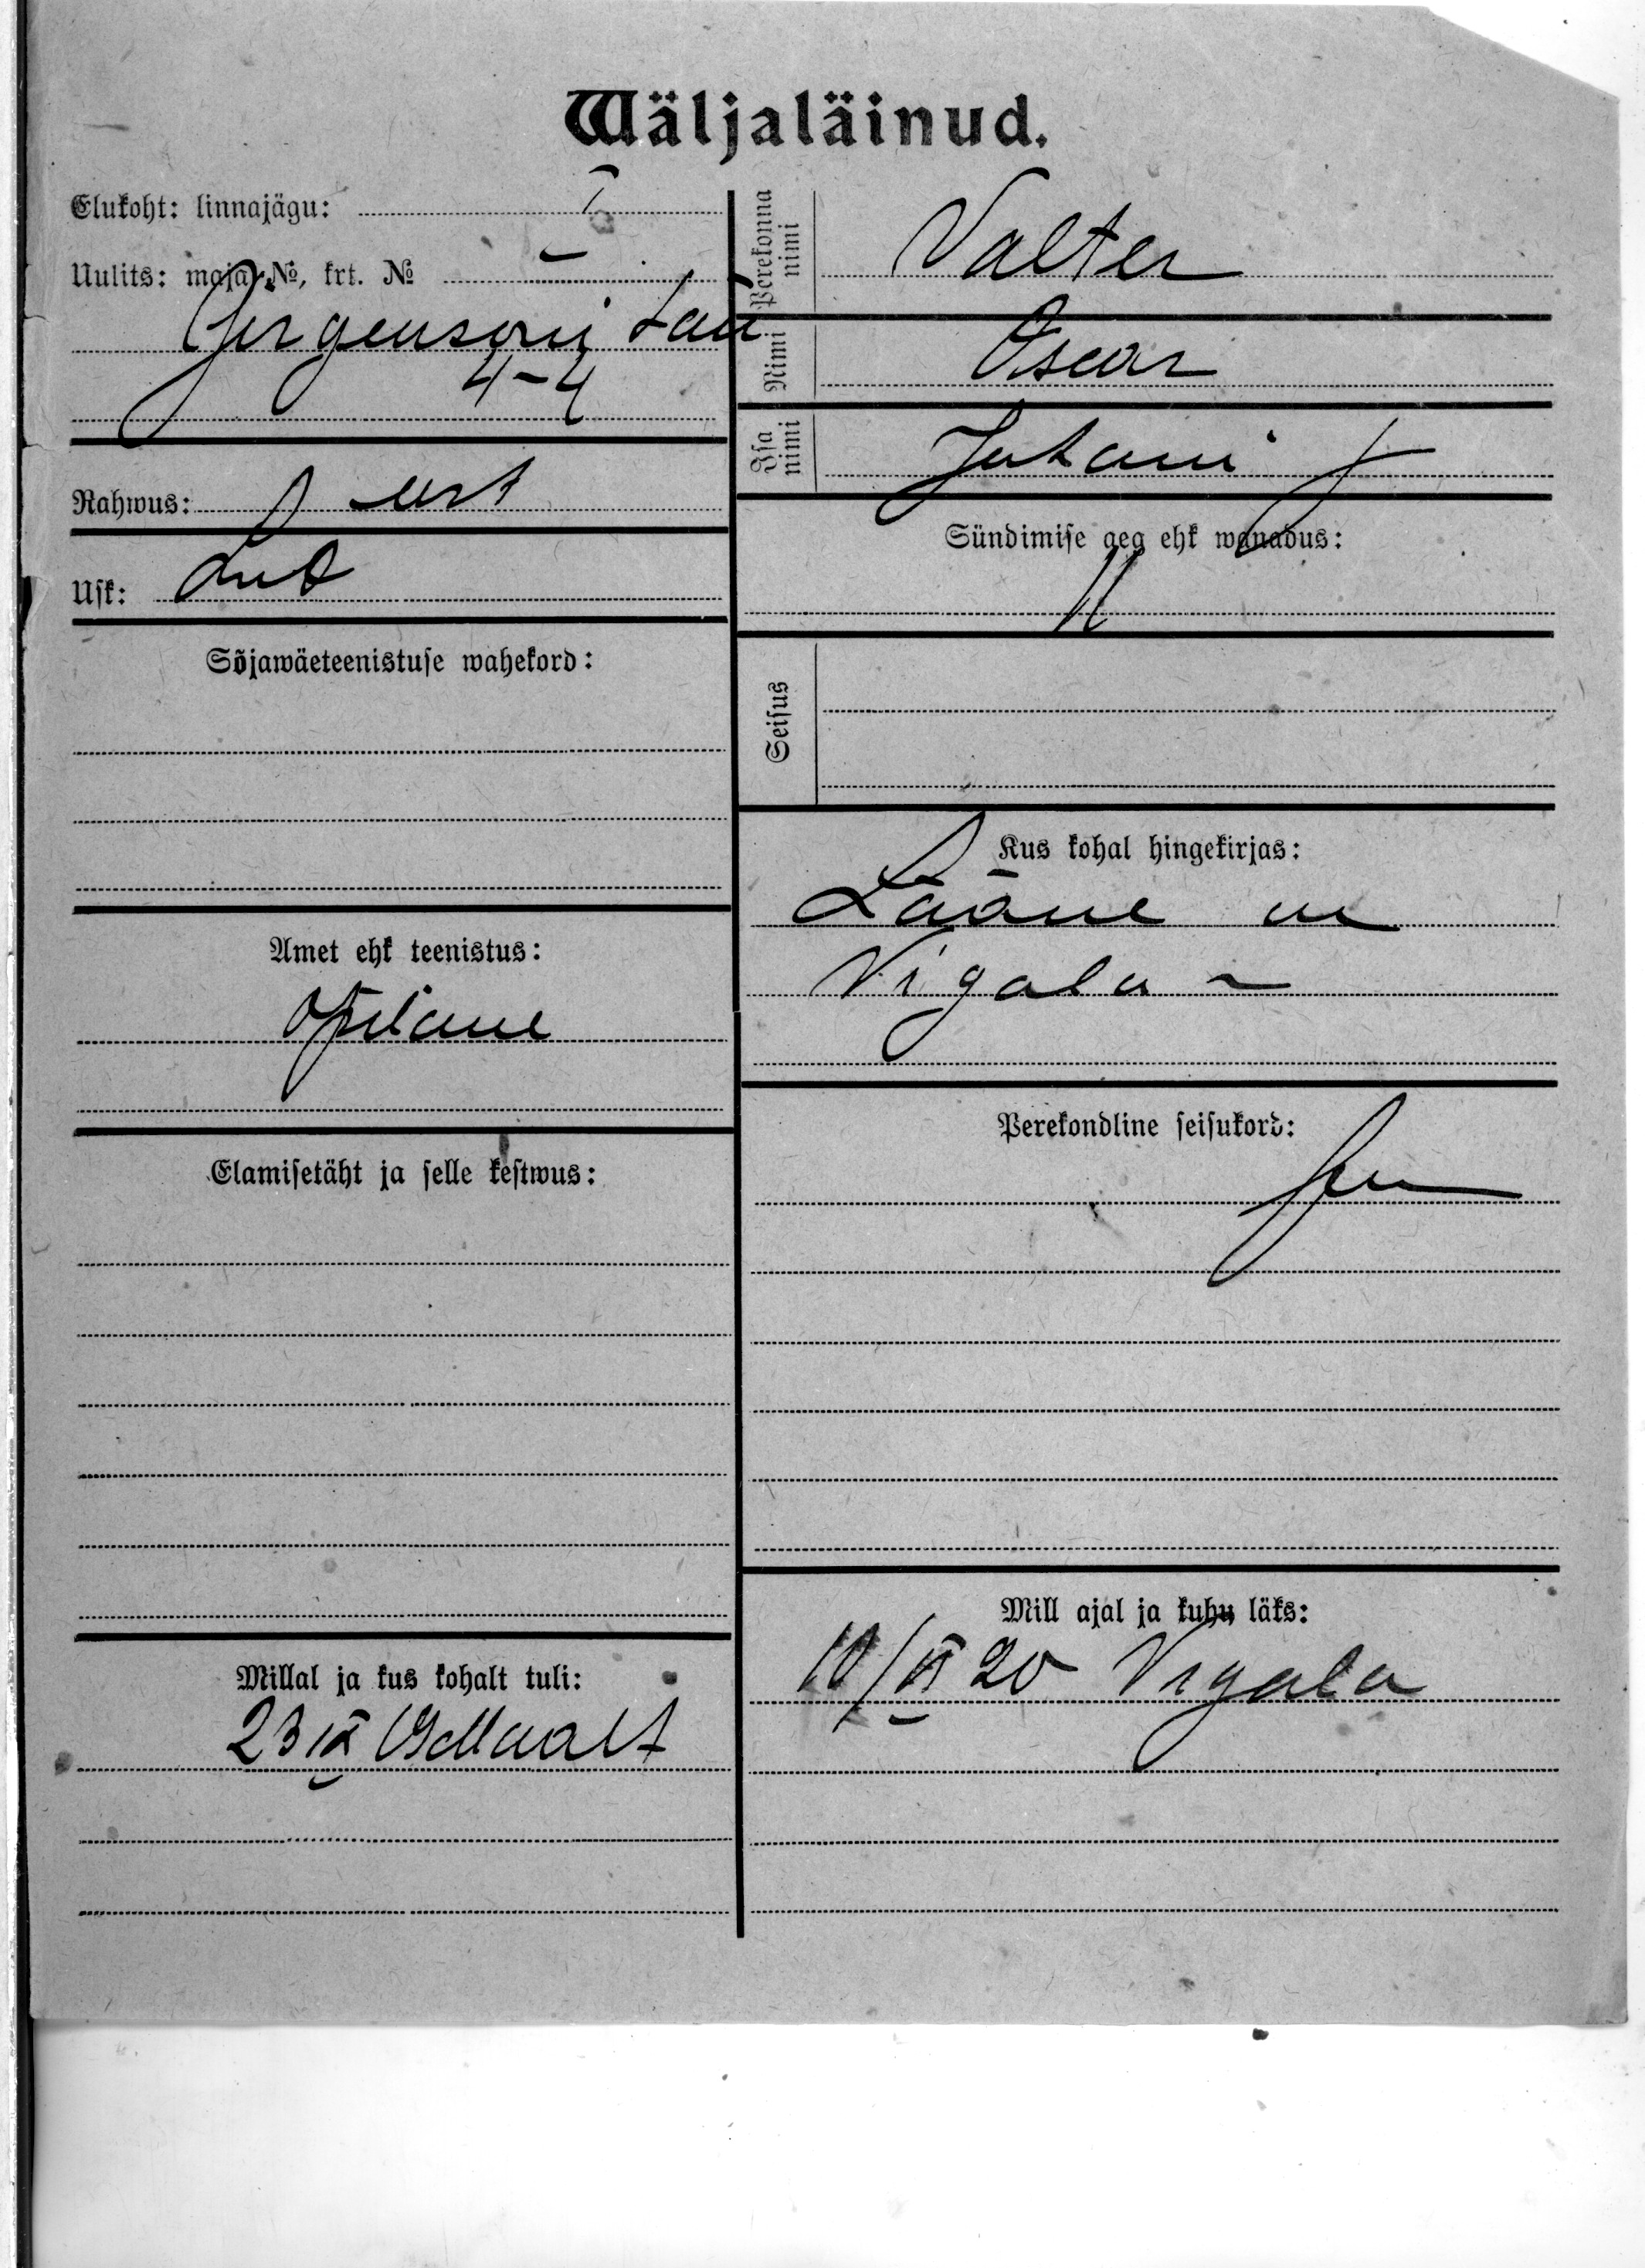 Wäljaläinud.
Elukoht: linnajägu: I
Uulits: maja №, krt. №
Jürgensoni tän
4-4
Rahwus: eest
Usk: Lut
Sõjawäeteenistuse wahekord:
Amet ehk teenistus:
Õpilane
Elamisetäht ja selle kestwus:
Millal ja kus kohalt tuli:
23 IX
Perekonna nimi
Valter
Nimi
Oscar
Isa nimi
Juhani p
Sündimise aeg ehk wanadus:
11
Seisus
Kus kohal hingekirjas:
Lääne m
Vigala
Perekondline seisukord:
Mill ajal ja kuhu läks:
10/VI 20 Vigala